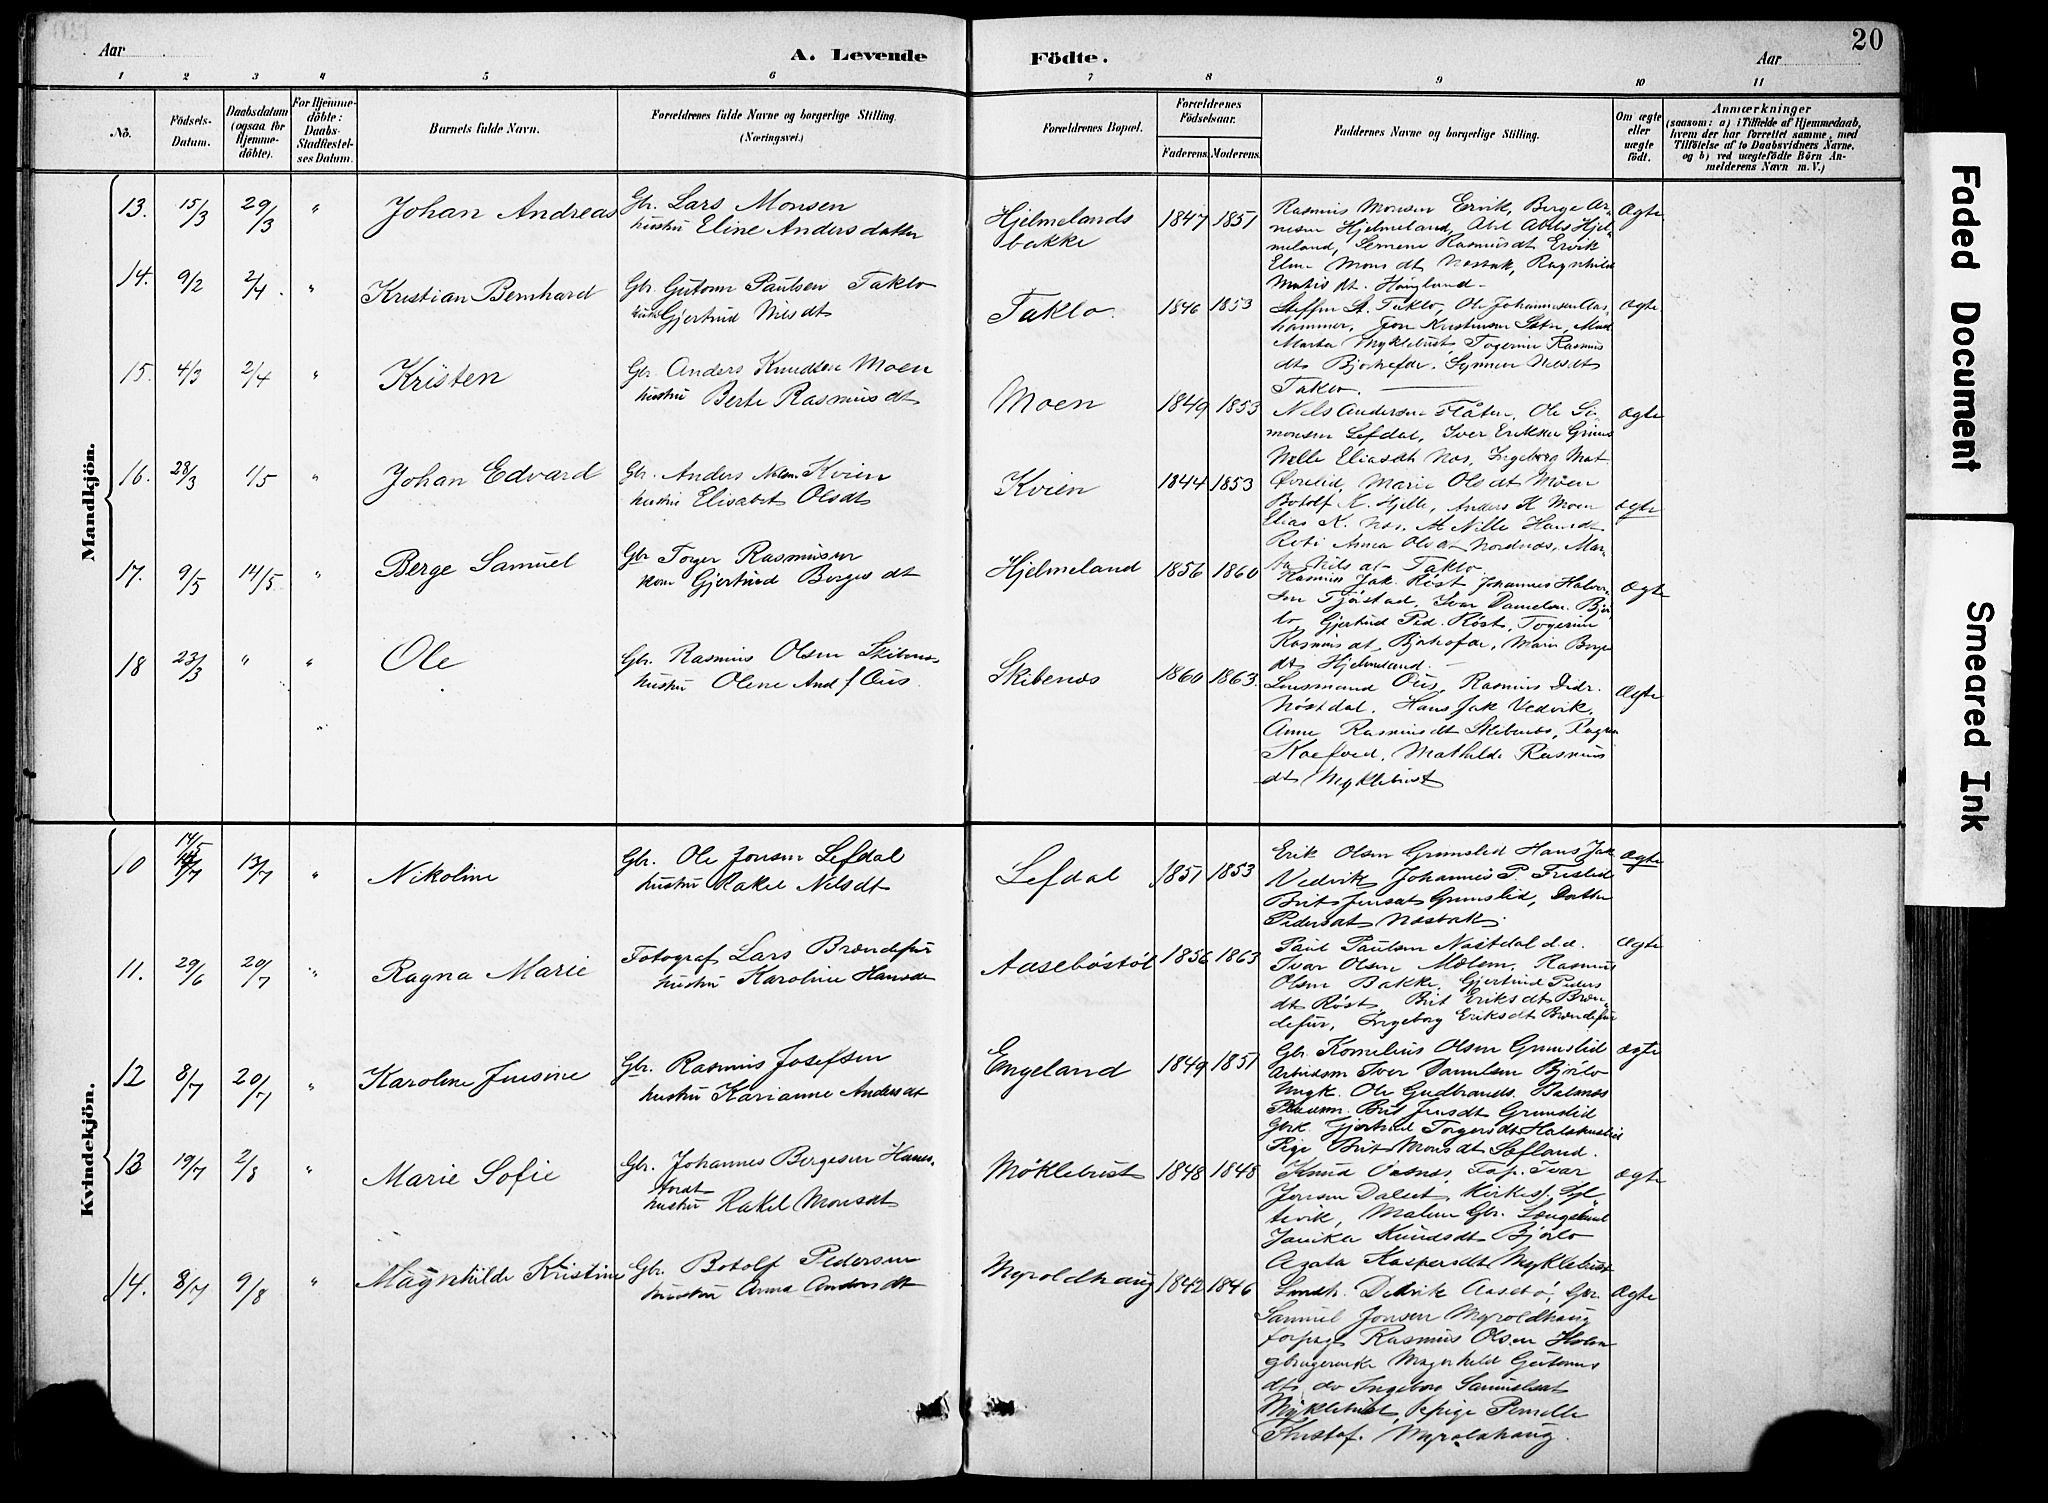 20
Aar
A. Levende
Födte.
Aar
1 2 3 4 5 6 7 8 9 10 11
No.
Födsels-Datum.
Daabsdatum (ogsaa for Hjemme-döbte).
For Hjemme-döbte: Daabs-Stadfæstel-ses Datum.
Barnets fulde Navn.
Forældrenes fulde Navne og borgerlige Stilling.
(Næringsvei.)
Forældrenes Bopæl.
Forældrenes Födselsaar.
Faderens.
Moderens.
Faddernes Navne og borgerlige Stilling.
Om ægte eller uægte födt.
Anmærkninger
(saasom: a) i Tilfælde af Hjemmedaab,
hvem der har forrettet samme, med
Tilföielse af to Daabsvidners Navne.
og b) ved uægtefödte Börn An-
melderens Navn m. V.)
Mandkjön.
13. 15/3 29/3 " Johan Andreas
Gbr. Lars Monsen
hustru Eline Andersdatter
Hjelmelands
bakke
1847 1851
Rasmus Monsen Ervik, Berge Ar-
nesen Hjelmeland, Abel Abels Hjel-
meland, Semene Rasmusdt Ervik
Eline Mons dt Nosbak, Ragnhild
Matis dt. Haugland
Ægte
14. 9/2 2/4 " Kristian Bernhard
Gbr. Gutorm Paulsen Taklo
hustru Gjertrud Nilsdt
Taklo
1846 1853
Steffen St. Taklo, Ole Johannesen Aas-
hammer, Jon Kristensen
Marta Myklebust, Togerine Rasmus
dt Synneve Nilsdt
Taklo.
ægte
15. 4/3 2/4 " Kristen
Gbr. Anders Knudsen Moen
hustru Berte Rasmusdt
Moen
1849 1853
Nils Andersen Flåten, Ole Si-
monsen Lefdal, Iver Eriksen
Nille Eliasdt Nos, Ingeborg Mat
Øvrelid, Marie Olsdt Moen
ægte
16. 28/3 1/5 " Johan Edvard
Gbr. Anders Nilsen Kvien
hustru Elisabet Olsdt
Kvien
1844 1853
Botolf K. Hjelle, Anders K Moen
Elias K. Nos, Nille Hansdt
Anna Olsdt Nordnæs, Mar-
ta Nils dt Taklo
ægte
17. 9/5 14/5 " Berge Samuel
Gbr Torger Rasmusen
kone Gjertrud Berges dt
Hjelmeland
1856 1860
Rasmus Jak. Røst Johannes Halvor-
sen Tjøstad, Ivar Danielsen Bjør-
lo Gjertrud Ped. Røst, Togerine
Rasmusdt, Marie Berge
dt Hjelmeland.
Ægte
18 23/3 " " Ole
Gbr. Rasmus Olsen Skibenes
hustru Olene And f Ous.
Skibenæs
1860 1863.
Lensmand Ous, Rasmus Didr.
Nøstdal, Hans Jak Vedvik,
Anne Rasmusdt Skibenæs, Ragna
Koefoed, Mathilde Rasmus
dt Myklebust
Ægte
"
Kvindekjön.
10 14/5 13/7 " Nikoline
Gbr. Ole Jonsen Lefdal
hustru Rakel Nilsdt
Lefdal
1851 1853
Erik Olsen Grimslid Hans Jak
Vedvik Johannes P.
Brit Jensdt Grimslid, Dorthe
Pedersdt Nosbak.
ægte
11. 29/6 20/7 " Ragna Marie
Fotograf Lars Brændefur
hustru Karoline Hansdt
Aasebøstøl
1856 1863
Paul Paulsen Nøstdal
Ivar Olsen Rasmus
Olsen Bakke, Gjertrud Peders
dt Røst, Brit Eriksdt Bræn-
defur, Ingeborg Eriksdt Brændefur
Ægte
12 8/7 20/7 " Karoline Jensine
Gbr. Rasmus Josefsen
hustru Karianne Andersdt
Engeland
1849 1851
Gbr Kornelius Olsen Grimslid
Arbeidsm Iver Danielsen Bjørlo
Ungk. Ole Gudbrands.
Brit Jensdt Grimslid
Gjertrud Torgersdt
Pige Brit Monsdt
ægte
13 19/7 2/8 " Marie Sofie
Gbr. Johannes Bergesen
hustru Rakel Monsdt
Møklebust
1848 1848
Knud Ivar
Jonsen Kirkes.
Malene Gbr.
Knudsdt Bjørlo
Agata Kaspersdt Myklebust
ægte
14. 8/7 9/8 " Magnhilde Kristine
Gbr. Botolf Pedersen
hustru Anna Andersdt
Myroldhaug
1842 1846
Aasebø, Gbr.
Samuel Jonsen Myroldhaug
forpagt Rasmus Olsen
Magnhild Gutorms
dt, do Ingeborg Samuelsdt
Myklebust, pige Pernelle
Kristof. Myroldhaug.
Ægte
Faded Document
Smeared Ink